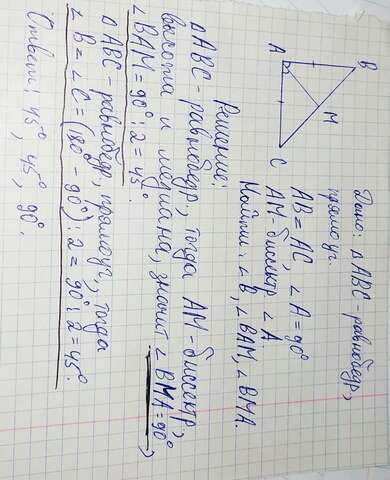 B
A
M
C
Дано: ΔABC - равнобедр,
прямоуг.
AB = AC, ∠A = 90°
AM - биссектр. ∠A
Найти: ∠B, ∠BAM, ∠BMA.
Решение:
ΔABC - равнобедр, тогда AM - биссектр,
высота и медиана, значит ∠BMA = 90°,
∠BAM = 90° : 2 = 45°.
ΔABC - равнобедр, прямоуг, тогда
∠B = ∠C = (180° - 90°) : 2 = 90° : 2 = 45°.
Ответ: 45°, 45°, 90°.